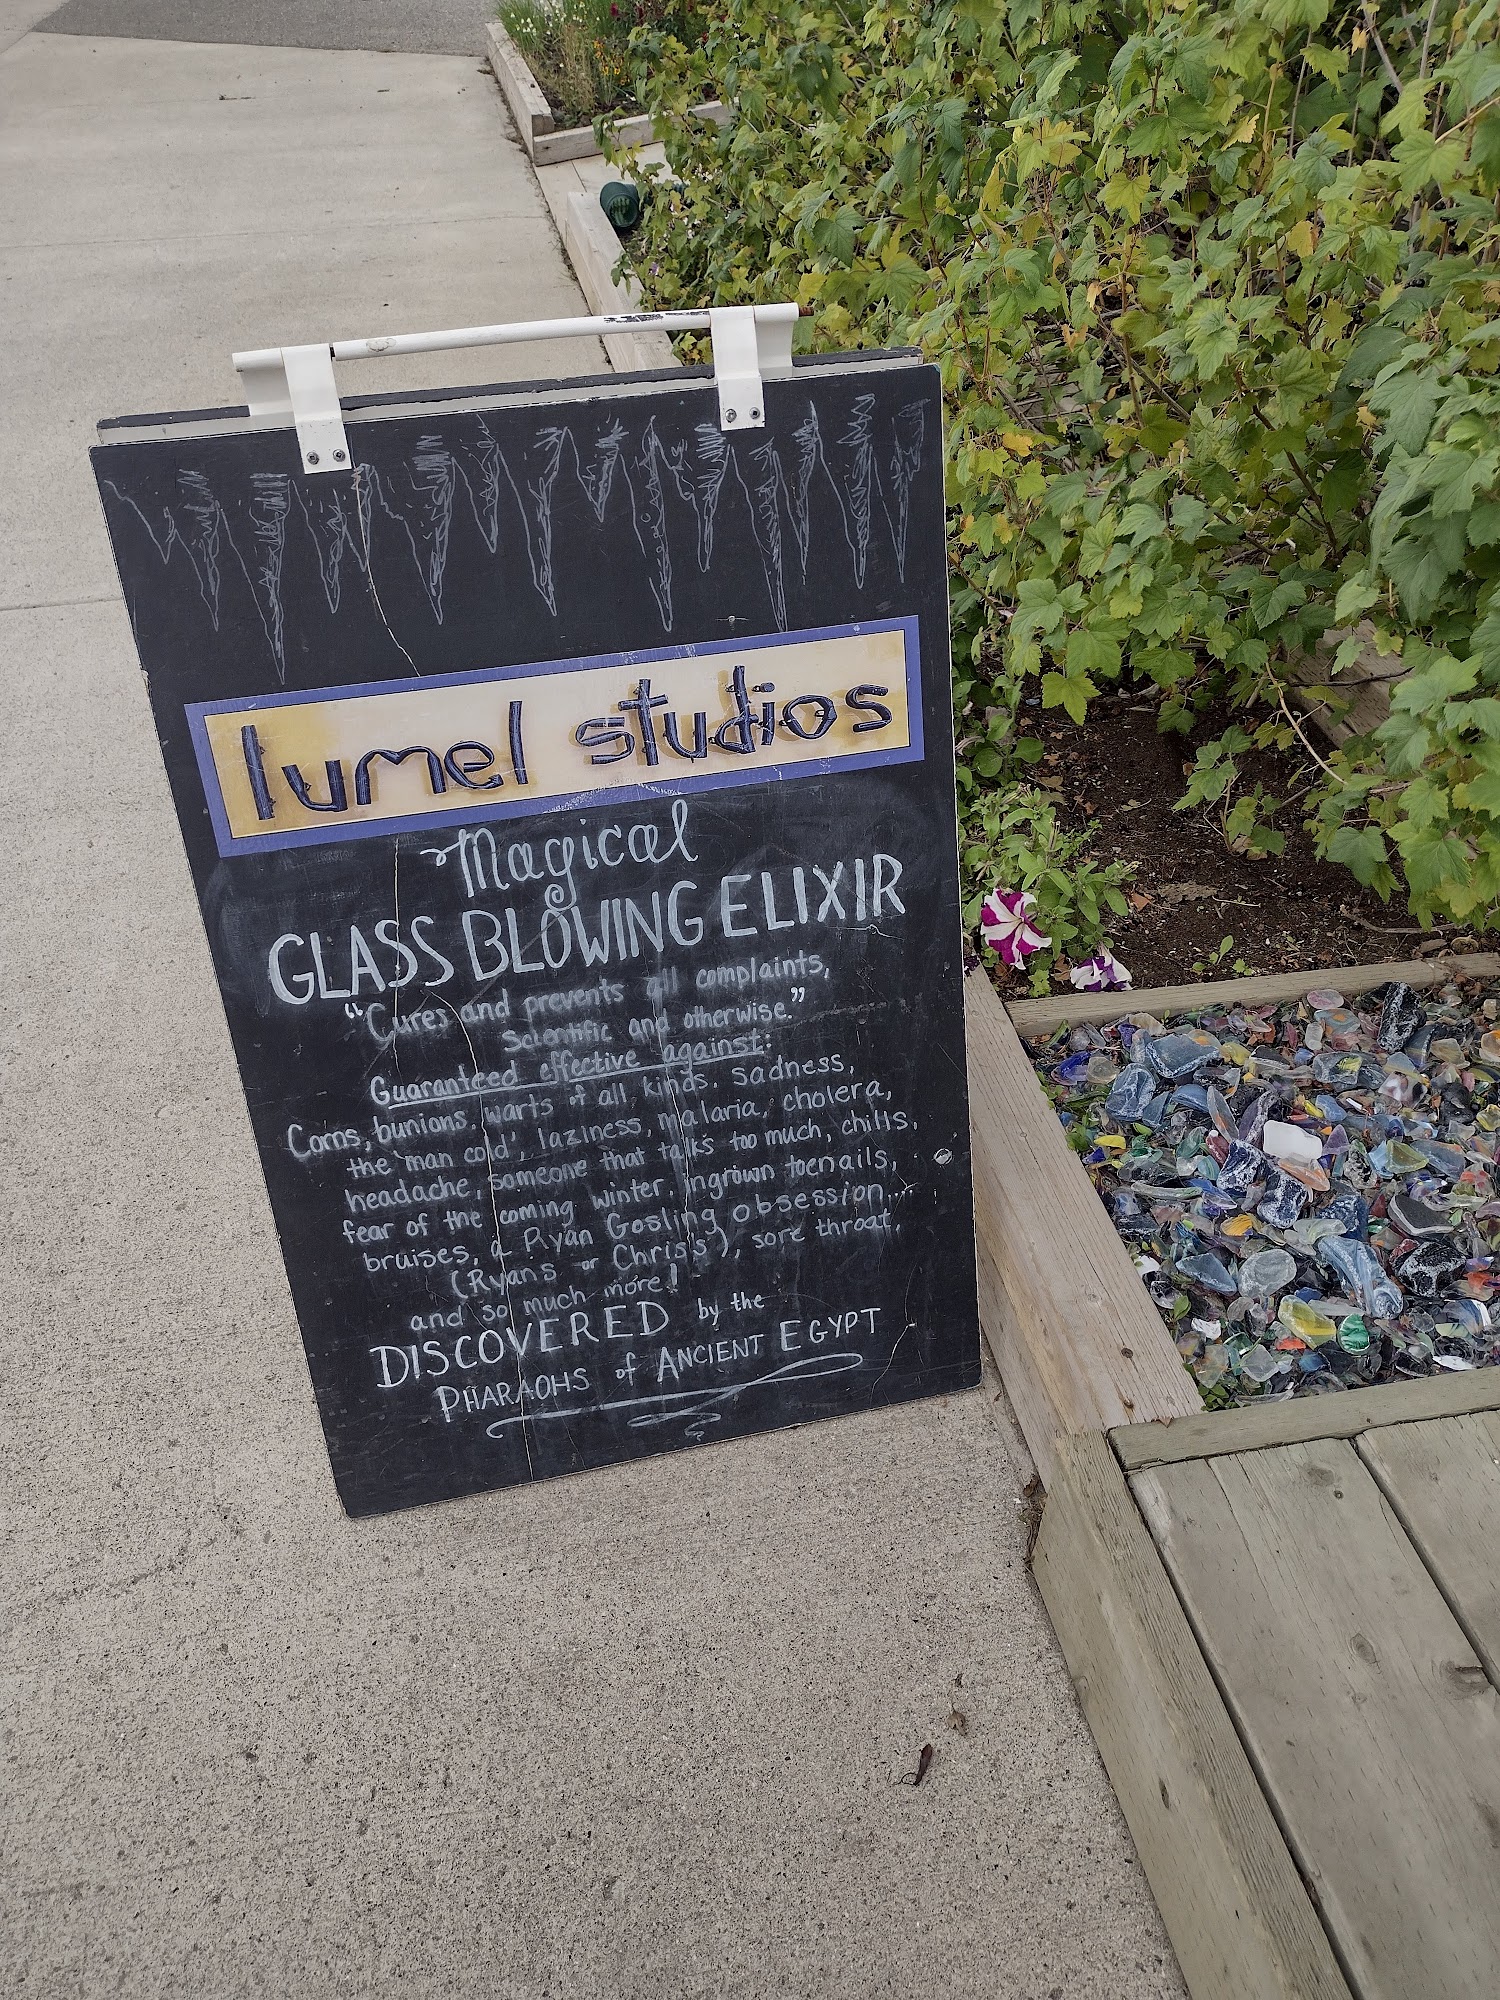 lumel studios
Magical
GLASS BLOWING ELIXIR
"Cures and prevents all complaints,
Scientific and otherwise."
Guaranteed effective against:
Corns, bunions, warts of all kinds. Sadness,
the 'man cold', laziness, malaria, cholera,
headache, someone that talks too much, chills,
fear of the coming winter, ingrown toenails,
bruises, a Ryan Gosling obsession...
(Ryan's or Chris's), sore throat,
and so much more!
DISCOVERED by the
PHARAOHS of ANCIENT EGYPT